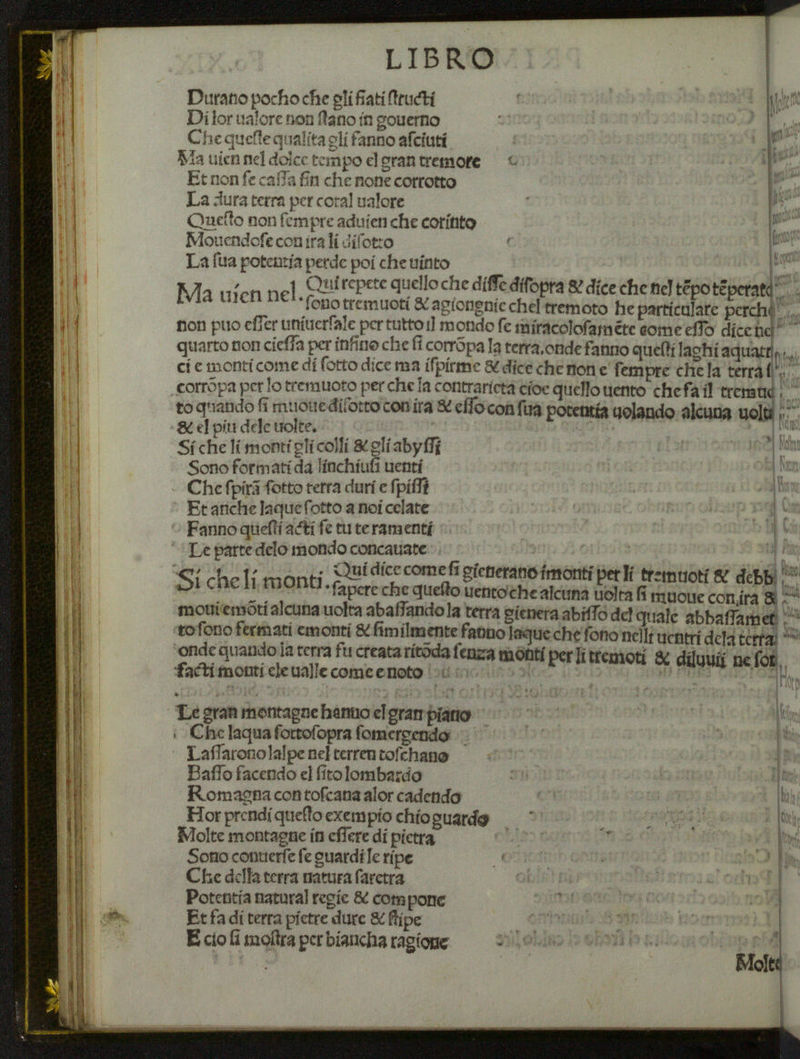 LIBRO
Durano pocho che gli fiati ſtructi
Di lor ualore non ſtano in gouerno
Che queſte qualita gli fanno aſciuti
Ma uien nel dolce tempo el gran tremore
Et non ſe caſſa fin che none corrotto
La dura terra per coral ualore
Queſto non ſempre aduien che corinto
Mouendoſe con ira li diſotto
La ſua potentia perde poi che uinto
Ma uien nel. Qui repete quello che diſſe diſopra & dice che nel tẽpo tẽperato
ſono tremuoti & agiongnie chel tremoto he particulare perche
non puo eſſer uniuerſale per tutto il mondo ſe miracoloſamẽte come eſſo dice nel
quarto non cieſſa per infino che ſi corrõpa la terra. onde fanno queſti laghi aquatri
ci e monti come di ſotto dice ma iſpirme & dice che non e ſempre che la terra ſ
corrõpa per lo tremuoto per che la contrarieta cioe quello uento che fa il tremuo
to quando ſi muoue diſotto con ira & eſſo con ſua potentia uolando alcuna uolta
& el piu dele uolte.
Si che li monti gli colli & gli abyſſi
Sono formati da linchiuſi uenti
Che ſpirã ſotto terra duri e ſpiſſi
Et anche laque ſotto a noi celate
Fanno queſti acti ſe tu te ramenti
Le parte delo mondo concauate
Si che li monti. Qui dice come ſi gienerano imonti per li tremuoti & debbi
ſapere che queſto uento che alcuna uolta ſi muoue con ira &
moui emõti alcuna uolta abaſſando la terra gienera abiſſo del quale abbaſſamen
to ſono fermati emonti & ſimilmente fanno laque che ſono nelli uentri dela terra
onde quando la terra fu creata ritõda ſenza monti per li tremoti & diluuii ne ſon
facti monti ele ualle come e noto
Le gran montagne hanno el gran piano
Che laqua ſottoſopra ſomergendo
Laſſarono lalpe nel terren toſchano
Baſſo facendo el ſito lombardo
Romagna con toſcana alor cadendo
Hor prendi queſto exempio chio guardo
Molte montagne in eſſere di pietra
Sono conuerſe ſe guardi le ripe
Che della terra natura faretra
Potentia natural regie & compone
Et fa di terra pietre dure & ſtipe
E cio ſi moſtra per biancha ragione
Molte